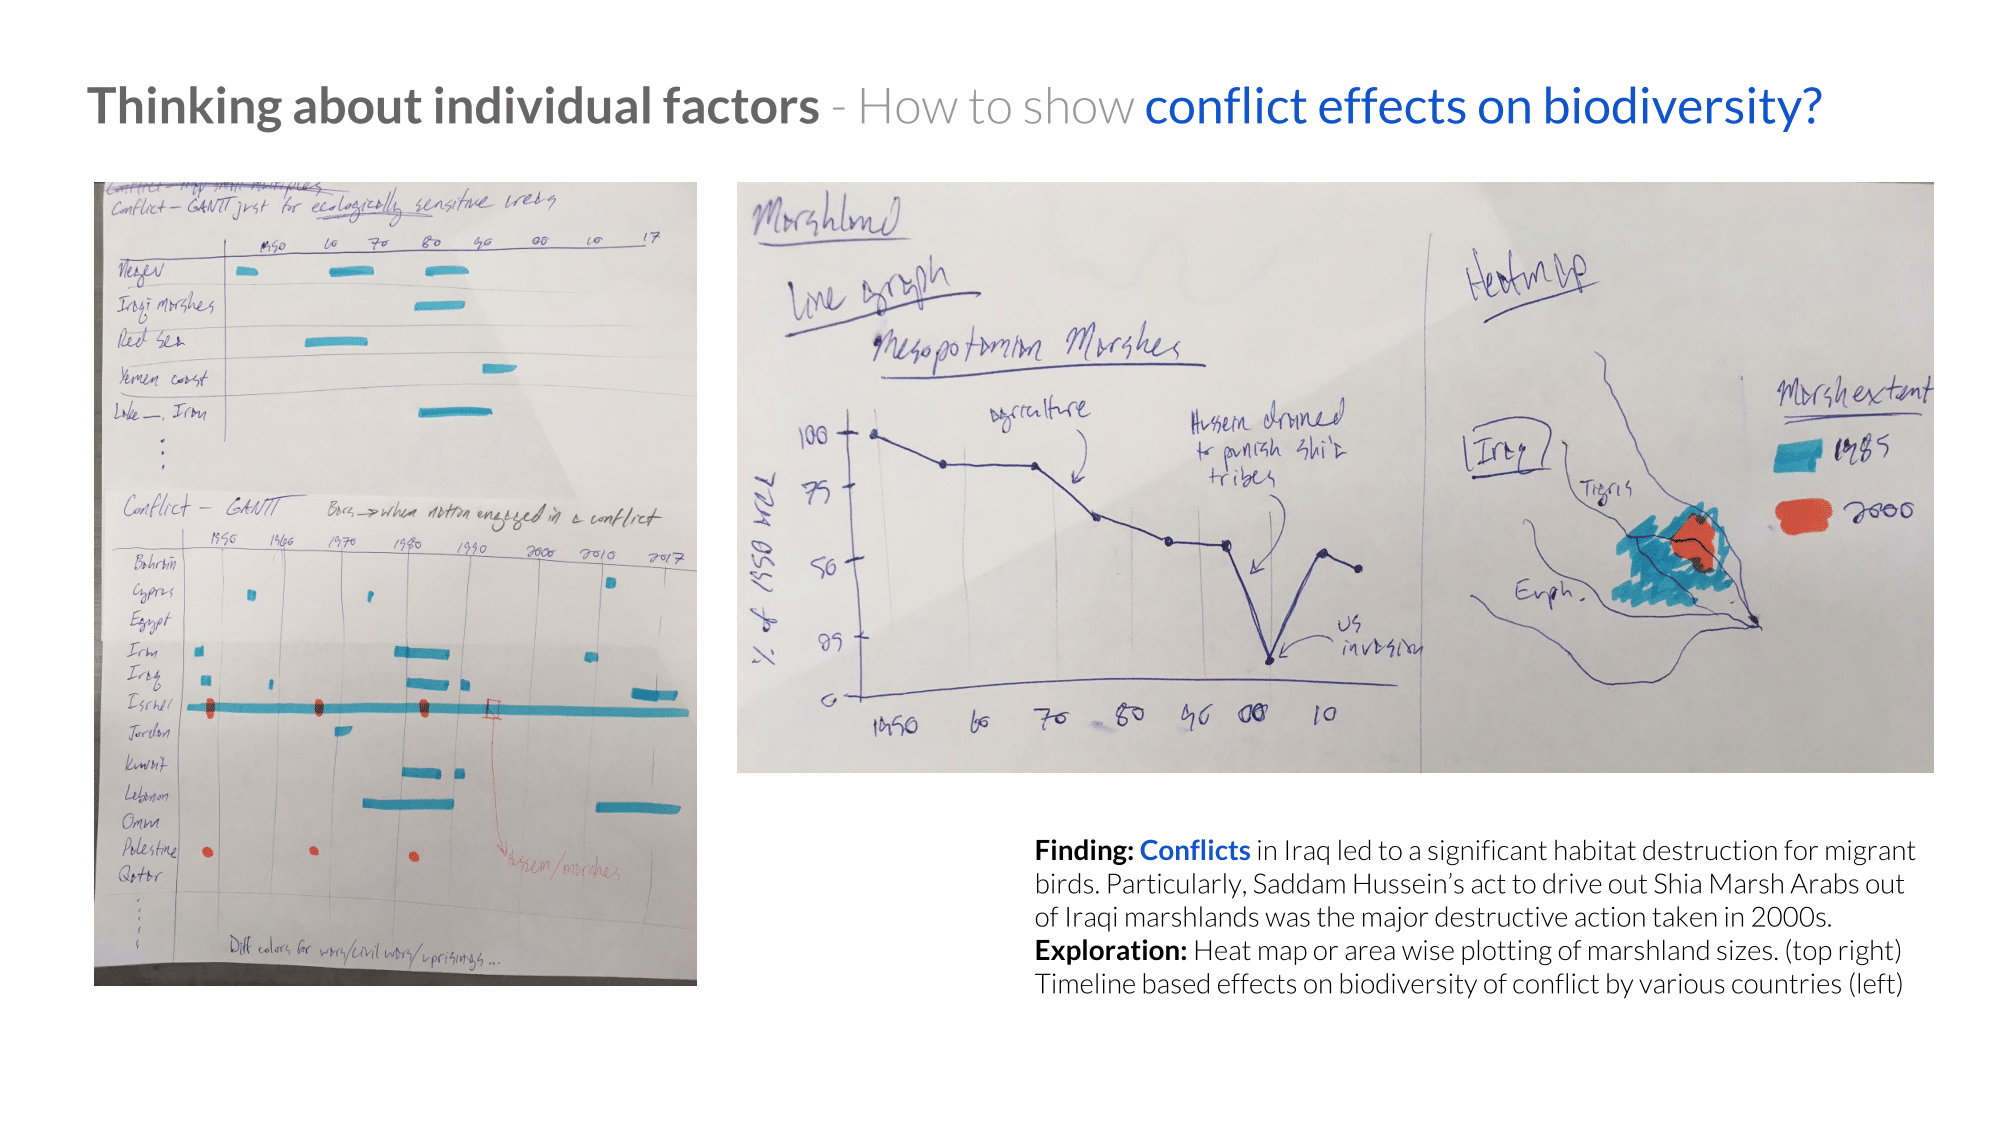 Thinking about individual factors - How to show conflict effects on biodiversity?
Conflict – GANTT just for ecologically sensitive areas
1950 60 70 80 90 00 10 17
Negev
Iraqi marshes
Red Sea
Yemen coast
Lake —, Iran
Conflict – GANTT
Bars → when nation engaged in a conflict
1950 1960 1970 1980 1990 2000 2010 2017
Bahrain
Cyprus
Egypt
Iran
Iraq
Israel
Jordan
Kuwait
Lebanon
Oman
Palestine
Qatar
Hussein/marshes
Diff colors for wars/civil wars/uprisings...
Marshland
Line graph
Mesopotamian Marshes
% of 1950 area
100
75
50
25
0
agriculture
Hussein drained
to punish Shi'a
tribes
US
invasion
1950 60 70 80 90 00 10
Heatmap
Iraq
Tigris
Euph.
Marsh extent
1985
2000
Finding: Conflicts in Iraq led to a significant habitat destruction for migrant
birds. Particularly, Saddam Hussein’s act to drive out Shia Marsh Arabs out
of Iraqi marshlands was the major destructive action taken in 2000s.
Exploration: Heat map or area wise plotting of marshland sizes. (top right)
Timeline based effects on biodiversity of conflict by various countries (left)